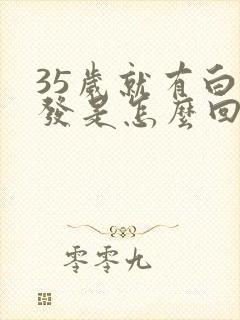 35歲就有白
發是怎麼回
零零九